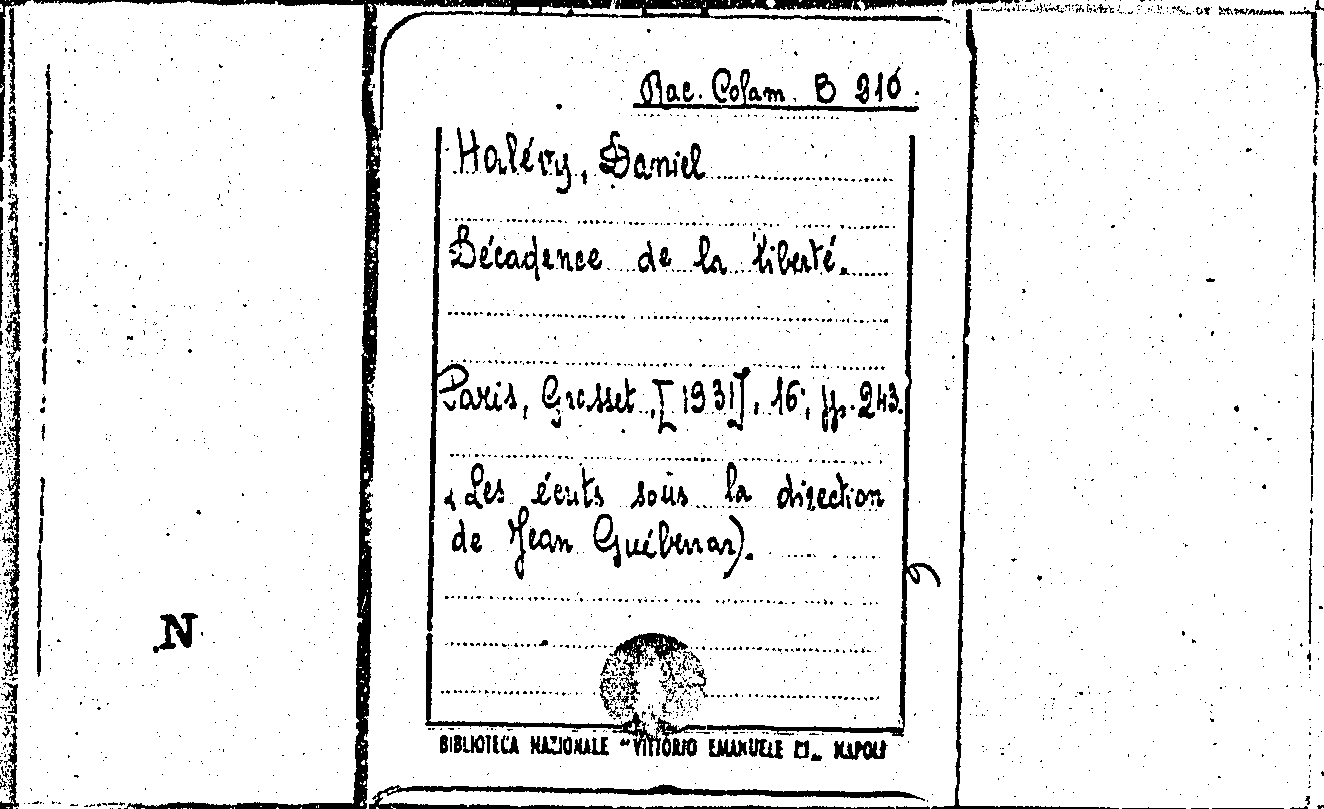 Rac. Colam. B 210.
Halévy, Daniel
Décadence de la liberté.
Paris, Grasset, [1931], 16°, pp. 243.
(Les écrits sous la direction
de Jean Guéhenno).
N
BIBLIOTECA NAZIONALE "VITTORIO EMANUELE III" NAPOLI